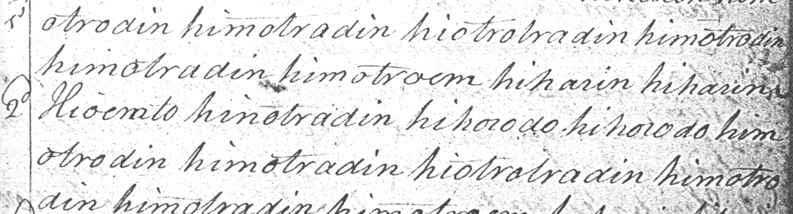 otrodin himotradin hiotrotradin himotrodin
himotradin himotroem hiharin hiharin
2d Hioemto hinotradin hihorodo hihorodo him
otrodin himotradin hiotrotradin himotro
din himotradin